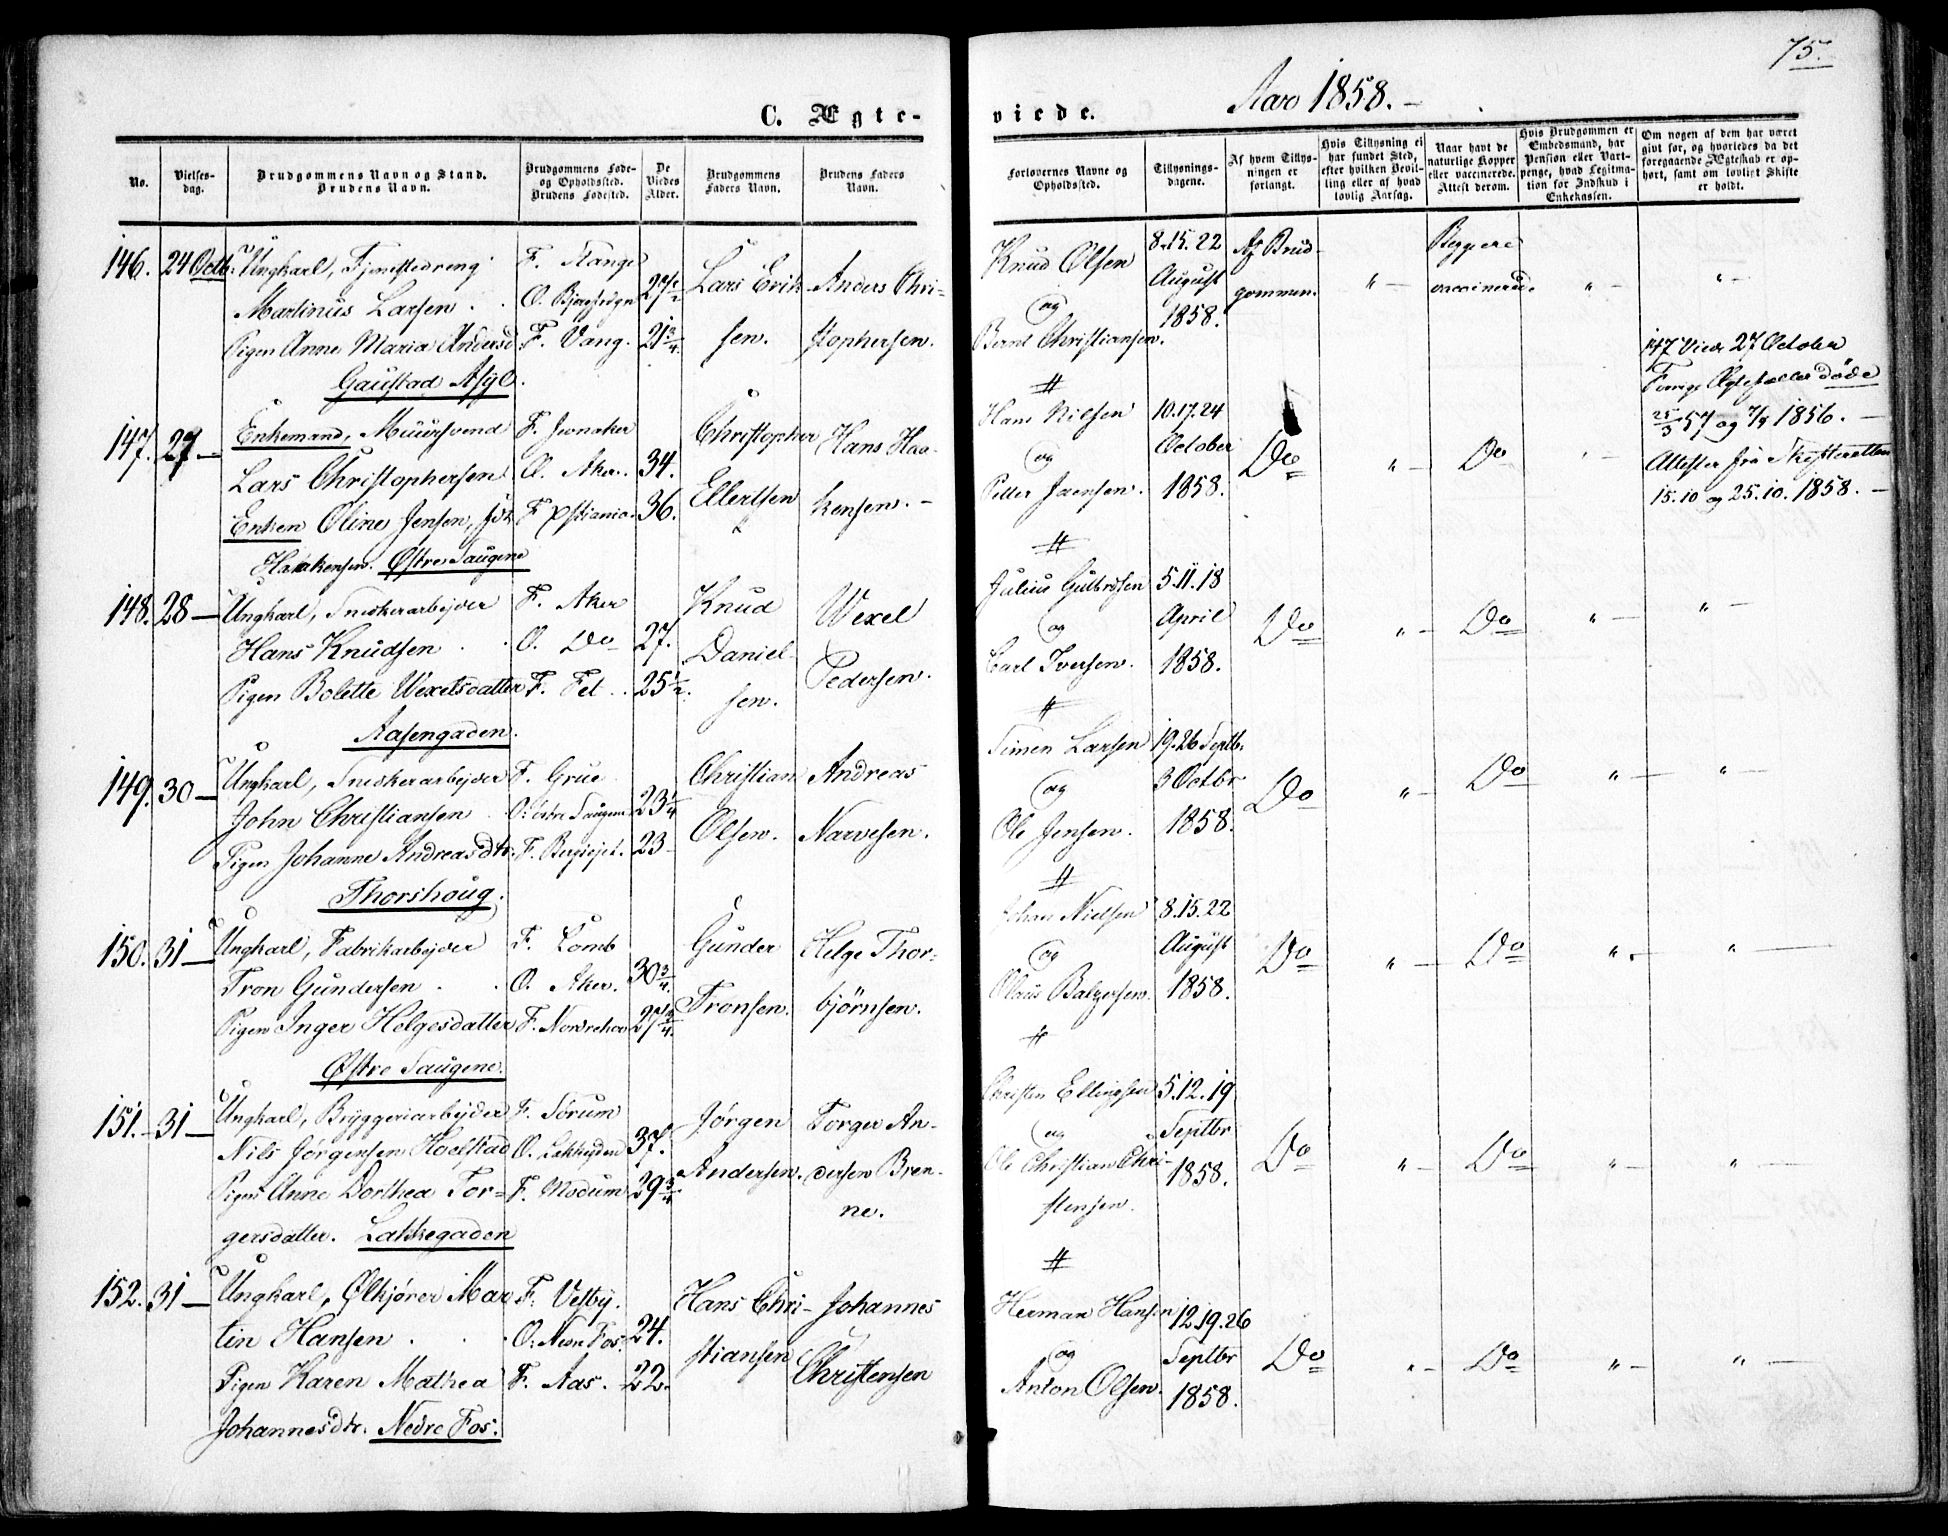 75.
C. Ægte-
viede.
Aaro 1858. –
No.
Vielses-
dag.
Brudgommens Navn og Stand.
Brudens Navn.
Brudgommens Føde-
og Opholdssted.
Brudens Fødested.
De
Viedes
Alder.
Brudgommens
Faders Navn.
Brudens Faders
Navn.
Forlovernes Navne og
Opholdssted.
Tillysnings-
dagene.
Af hvem Tillys-
ningen er
forlangt.
Hvis Tillysning ei
har fundet Sted,
efter hvilken Bevil-
ling eller af hvad
lovlig Aarsag.
Naar havt de
naturlige Kopper
eller vaccinerede.
Attest derom.
Hvis Brudgommen er
Embedsmand, har
Pension eller Vart-
penge, hvad Legitima-
tion for Indskud i
Enkekassen.
Om nogen af dem har været
givt før, og hvorledes da det
foregaaende Ægteskab er op-
hørt, samt om lovligt Skifte
er holdt.
146. 24 Octb.
Ungkarl,
Martinus Larsen
Pigen Anne Maria Andersd
Gaustad Asyl.
F. Stange
O.
F. Vang.
27 1/2
21 3/4
Lars Erik-
sen.
Anders Chri-
stophersen.
Knud Olsen
og
Bernt Christiansen.
8.15.22
August
1858.
Af Brud-
gommen.
" –
Begge ere
vaccinerede.
" –
" –
147. 27 –
Enkemand, Muursvend
Lars Christophersen
Enken Oline Jensen, født
Haakensen. Østre Saugene
F. Jevnaker
O. Aker.
F. Xstiania.
34.
36.
Christopher
Ellertsen
Hans Haa-
kensen. –
Hans Nilsen
og
Petter Jaensen.
10.17.24
October
1858.
Do
" –
Do
147 Viede 27 October
Forrige Ægtefæller døde
25/3 57 og 7/9 1856. –
Attester fra Skifteretten
15.10 og 25.10. 1858. –
148. 28 –
Ungkarl, Snedkerarbeyder
Hans Knudsen
Pigen Bolette Wexelsdatter
Aasengaden.
F. Aker
O. Do
F. Fet
27.
25 1/2.
Knud
Daniel-
sen.
Wexel
Pedersen.
Julius Gulbrdsen
og
Carl Iversen.
5.11.18
April
1858.
Do
" –
Do
" –
" –
149. 30 –
Ungkarl, Snedkerarbeyder
John Christiansen
Pigen Johanne Andreasdtr.
Thorshoug.
F. Grue
O: Østre Saugene
F. Bergsejet.
23 1/4
23
Christian
Olsen.
Andreas
Narvesen.
Simen Larsen
og
Ole Jensen.
19.26 Septb.
3 Octbr
1858.
Do
" –
Do
" –
" –
150. 31 –
Ungkarl, Fabrikarbeyder
Tron Gundersen
Pigen Inger Helgesdatter
Østre Saugene.
F. Lomb
O. Aker.
F. Norderhov
30 3/4.
27 3/4.
Gunder
Tronsen.
Helge Thor-
björnsen.
Johan Nielsen
og
Olaus Balzersen.
8.15.22
August
1858.
Do
" –
Do
" –
" –
151. 31 –
Ungkarl, Bryggeriarbeyder
Nils Jørgensen Hoelstad
Pigen Anne Dorthea Tor-
gersdatter. Lakkegaden
F. Sørum
O. Lakkegden
F. Modum
37.
29 3/4.
Jørgen
Andersen.
Torger An-
dersen Bren-
ne.
Christen Ellingsen
og
Ole Christian Chri-
stensen.
5.12.19
Septbr
1858.
Do
" –
Do
" –
" –
152. 31 –
Ungkarl, Ølkjører Mar
tin Hansen
Pigen Karen Mathea
Johannesdtr. Nedre Fos.
F. Vestby.
O: Nedre Fos.
F. Aas.
24.
22.
Hans Chri-
stiansen
Johannes
Christensen
Herman Hansen
og
Anton Olsen.
12.19.26
Septbr
1858.
Do
" –
Do
" –
" –